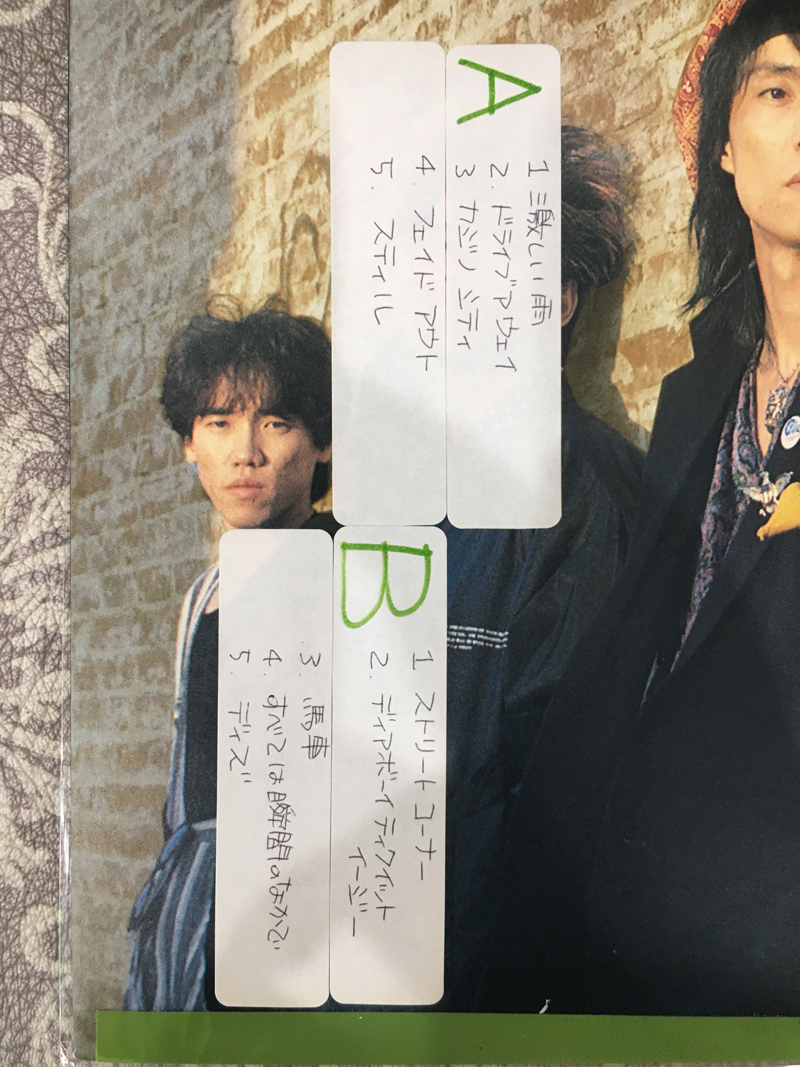 A
1 激しい雨
2. ドライブアウェイ
3 カジノ シティ
4. フェイドアウト
5. スティル
B
1 ストリート コーナー
2. ディアボーイ ティクイット
イージー
3. 馬車
4. すべては瞬間のなかで
5. ディズ